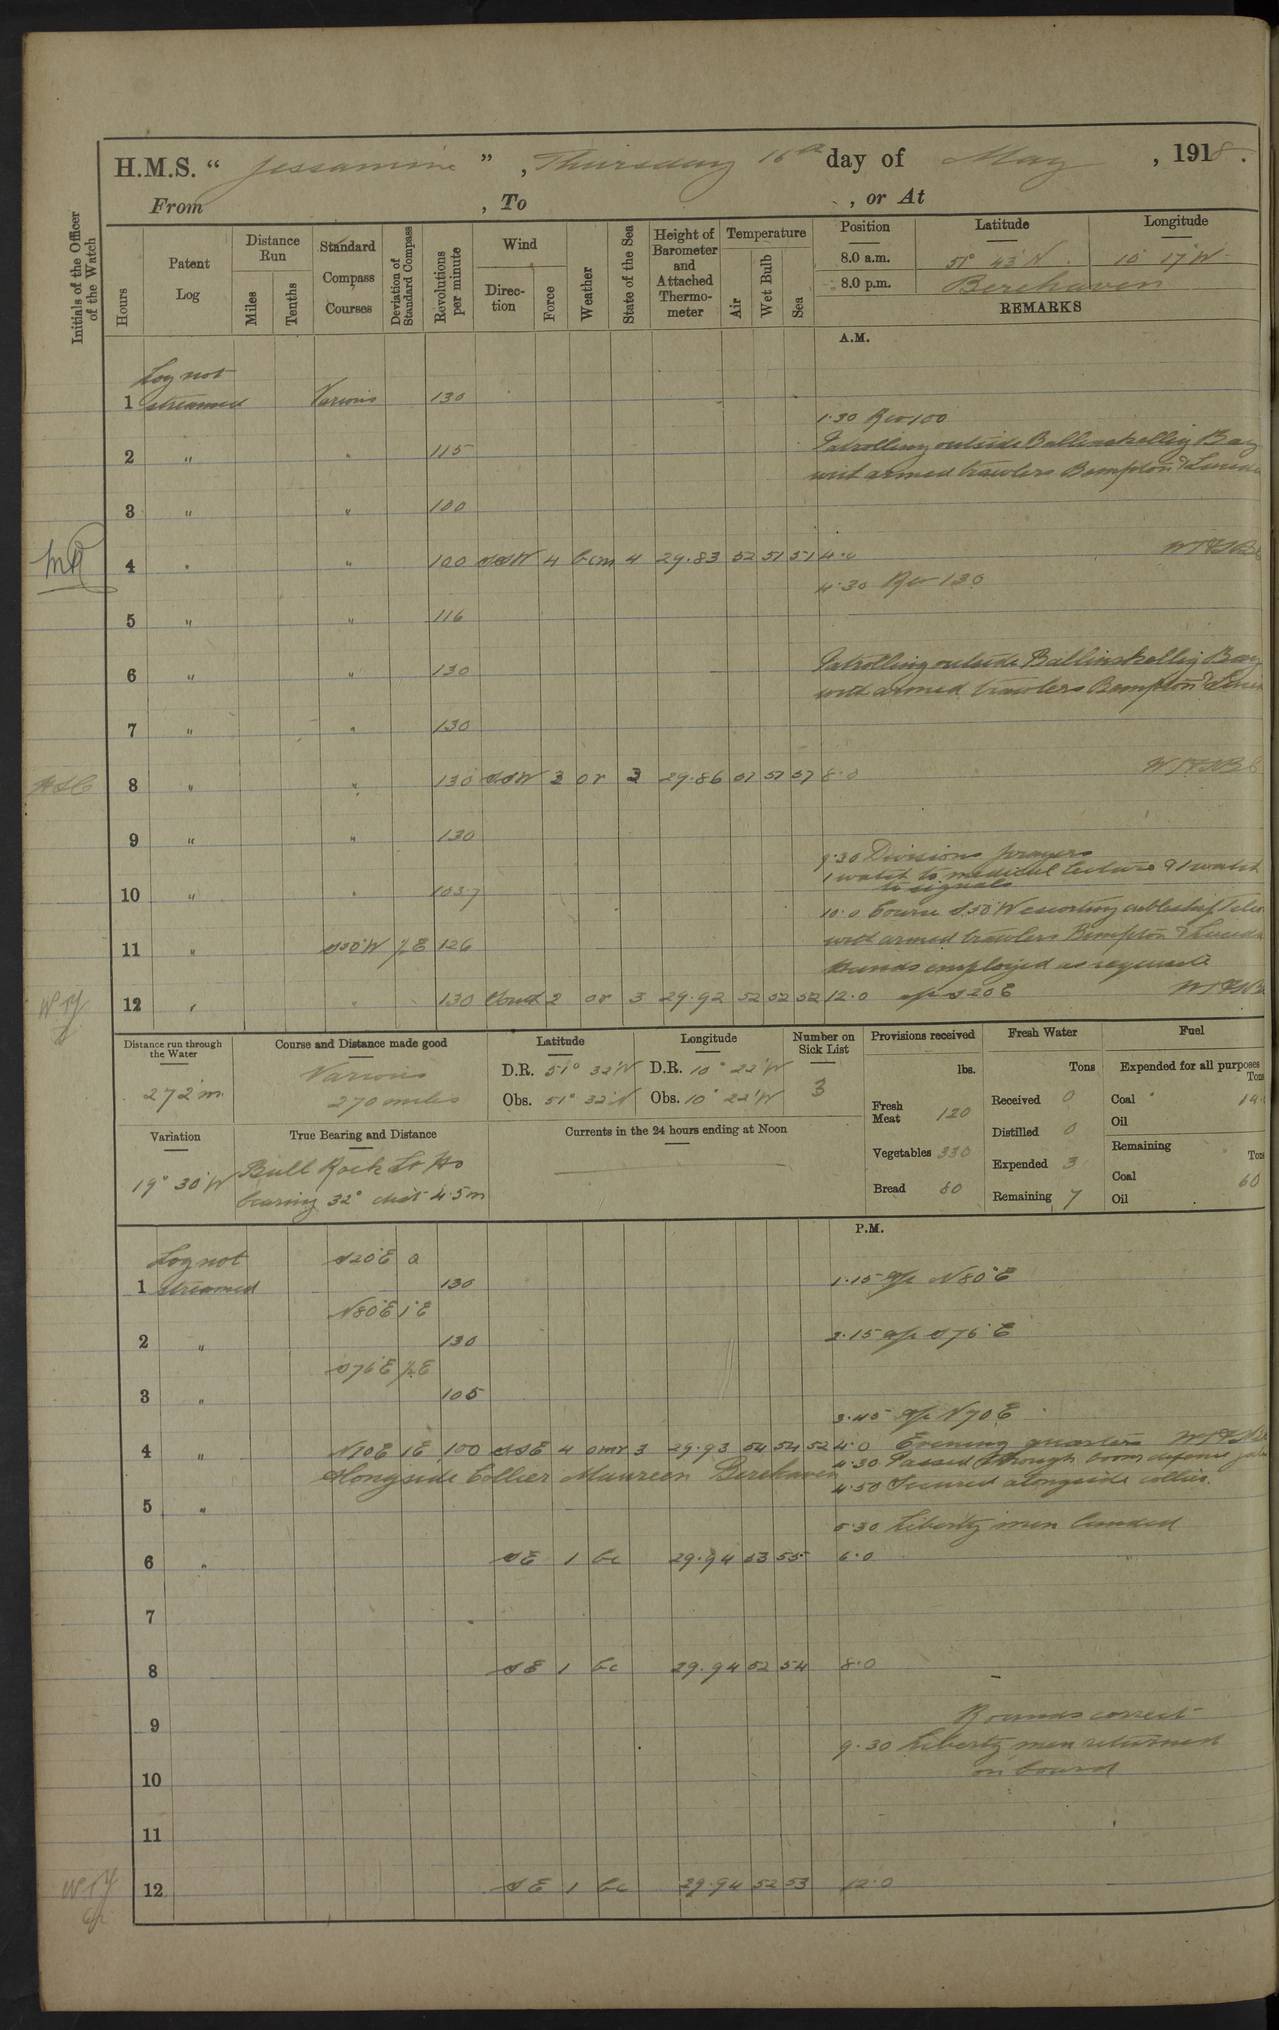 H.M.S. " Jessamine ", Thursday 16th day of May, 1918.
From , To , or At
Initials of the Officer of the Watch
Hours
Patent Log
Distance Run
Miles
Tenths
Standard Compass Courses
Deviation of Standard Compass
Revolutions per minute
Wind
Direction
Force
Weather
State of the Sea
Height of Barometer and Attached Thermometer
Temperature
Air
Wet Bulb
Sea
Position Latitude Longitude
8.0 a.m. 51° 43' N. 10° 17' W
8.0 p.m. Berehaven
REMARKS
A.M.
Log not
1 streamed Various 130
1.30 Rev 100
Patrolling outside Ballinskellig Bay
2 " " 115
with armed trawlers Bempton &
3 " " 100
4 " " 100 SSW 4 bcm 4 29.83 52 51 51 4.0
4.30 Rev 130
5 " " 116
6 " " 130 Patrolling outside Ballinskellig Bay
with armed trawlers Bempton &
7 " " 130
8 " " 130 SSW 3 or 3 29.86 8.0
9 " " 130
9.30 Divisions prayers
1 watch to medical lecture & 1 watch
to signals
10 " " 103.7
10.0 Course S50°W escorting cableship
11 " S50°W ½E 126 with armed trawlers Bempton &
Hands employed as requisite
12 " " 130 South 2 or 3 29.92 52 52 52 12.0 a/c S20E
Distance run through the Water
272 m.
Course and Distance made good
Various
270 miles
Latitude
D.R. 51° 32' N
Obs. 51° 32' N
Longitude
D.R. 10° 22' W
Obs. 10° 22' W
Number on Sick List
3
Provisions received
lbs.
Fresh Meat 120
Vegetables 330
Bread 80
Fresh Water
Tons
Received 0
Distilled 0
Expended 3
Remaining 7
Fuel
Expended for all purposes
Tons
Coal
Oil
Remaining
Tons
Coal 60
Oil
Variation
19° 30' W
True Bearing and Distance
Bull Rock Lt Ho
bearing 32° dist 4.5m
Currents in the 24 hours ending at Noon
P.M.
Log not S20°E 0
1 streamed 130 1.15 a/c N80°E
N80°E 1°E
2 " 130 2.15 a/c S76°E
S76°E ½E
3 " 105
3.45 a/c N70E
4 " N70E 1E 100 SSE 4 omr 3 29.93 54 54 52 4.0 Evening quarters
Alongside Collier Maureen Berehaven
4.30 Passed through boom defence
4.50 Secured alongside collier.
5 "
5.30 Liberty men landed
6 " SE 1 bc 29.94 53 55 6.0
7
8 SE 1 bc 29.94 52 54 8.0
Rounds correct
9
9.30 Liberty men returned
on board
10
11
12 SE 1 bc 29.94 52 53 12.0